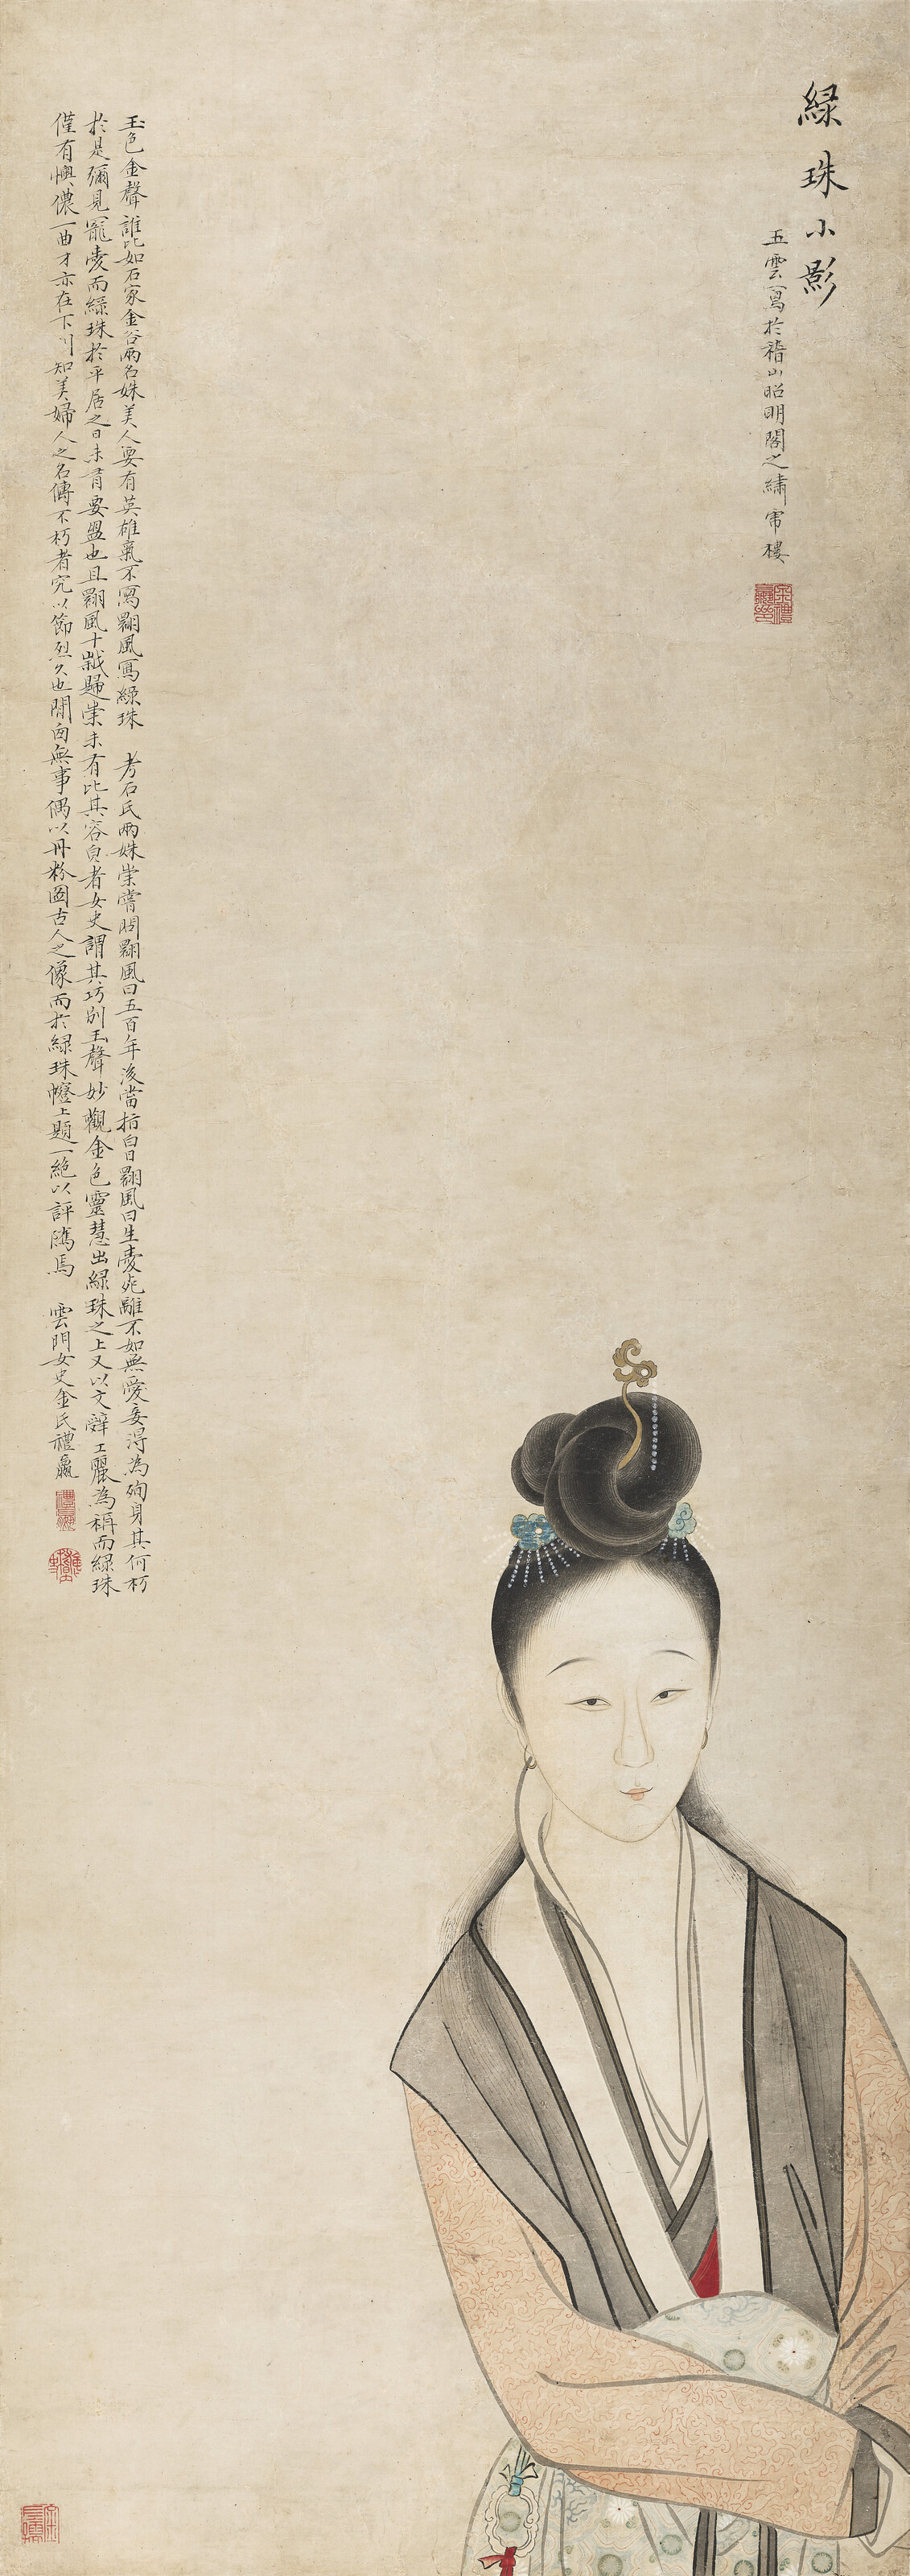 綠珠小影
五雲寫於稽山昭明閣之繡帘樓
玉色金聲誰比如石家金谷兩名姝美人要有英雄氣不寫翾風寫綠珠 考石氏兩姝崇嘗問翾風曰五百年後當指白日翾風曰生愛死離不如無愛妾得為殉身其何朽
於是彌見寵愛而綠珠於平居之日未有要盟也且翾風十歲歸崇未有比其容皃者女史謂其巧別玉聲妙觀金色靈慧出綠珠之上又以文辭工麗為稱而綠珠
僅有懊儂一曲才亦在下則知美婦人之名傳不朽者究以節烈久也閒窗無事偶以丹粉圖古人之像而於綠珠幢上題一絕以評隲焉 雲門女史金氏禮嬴